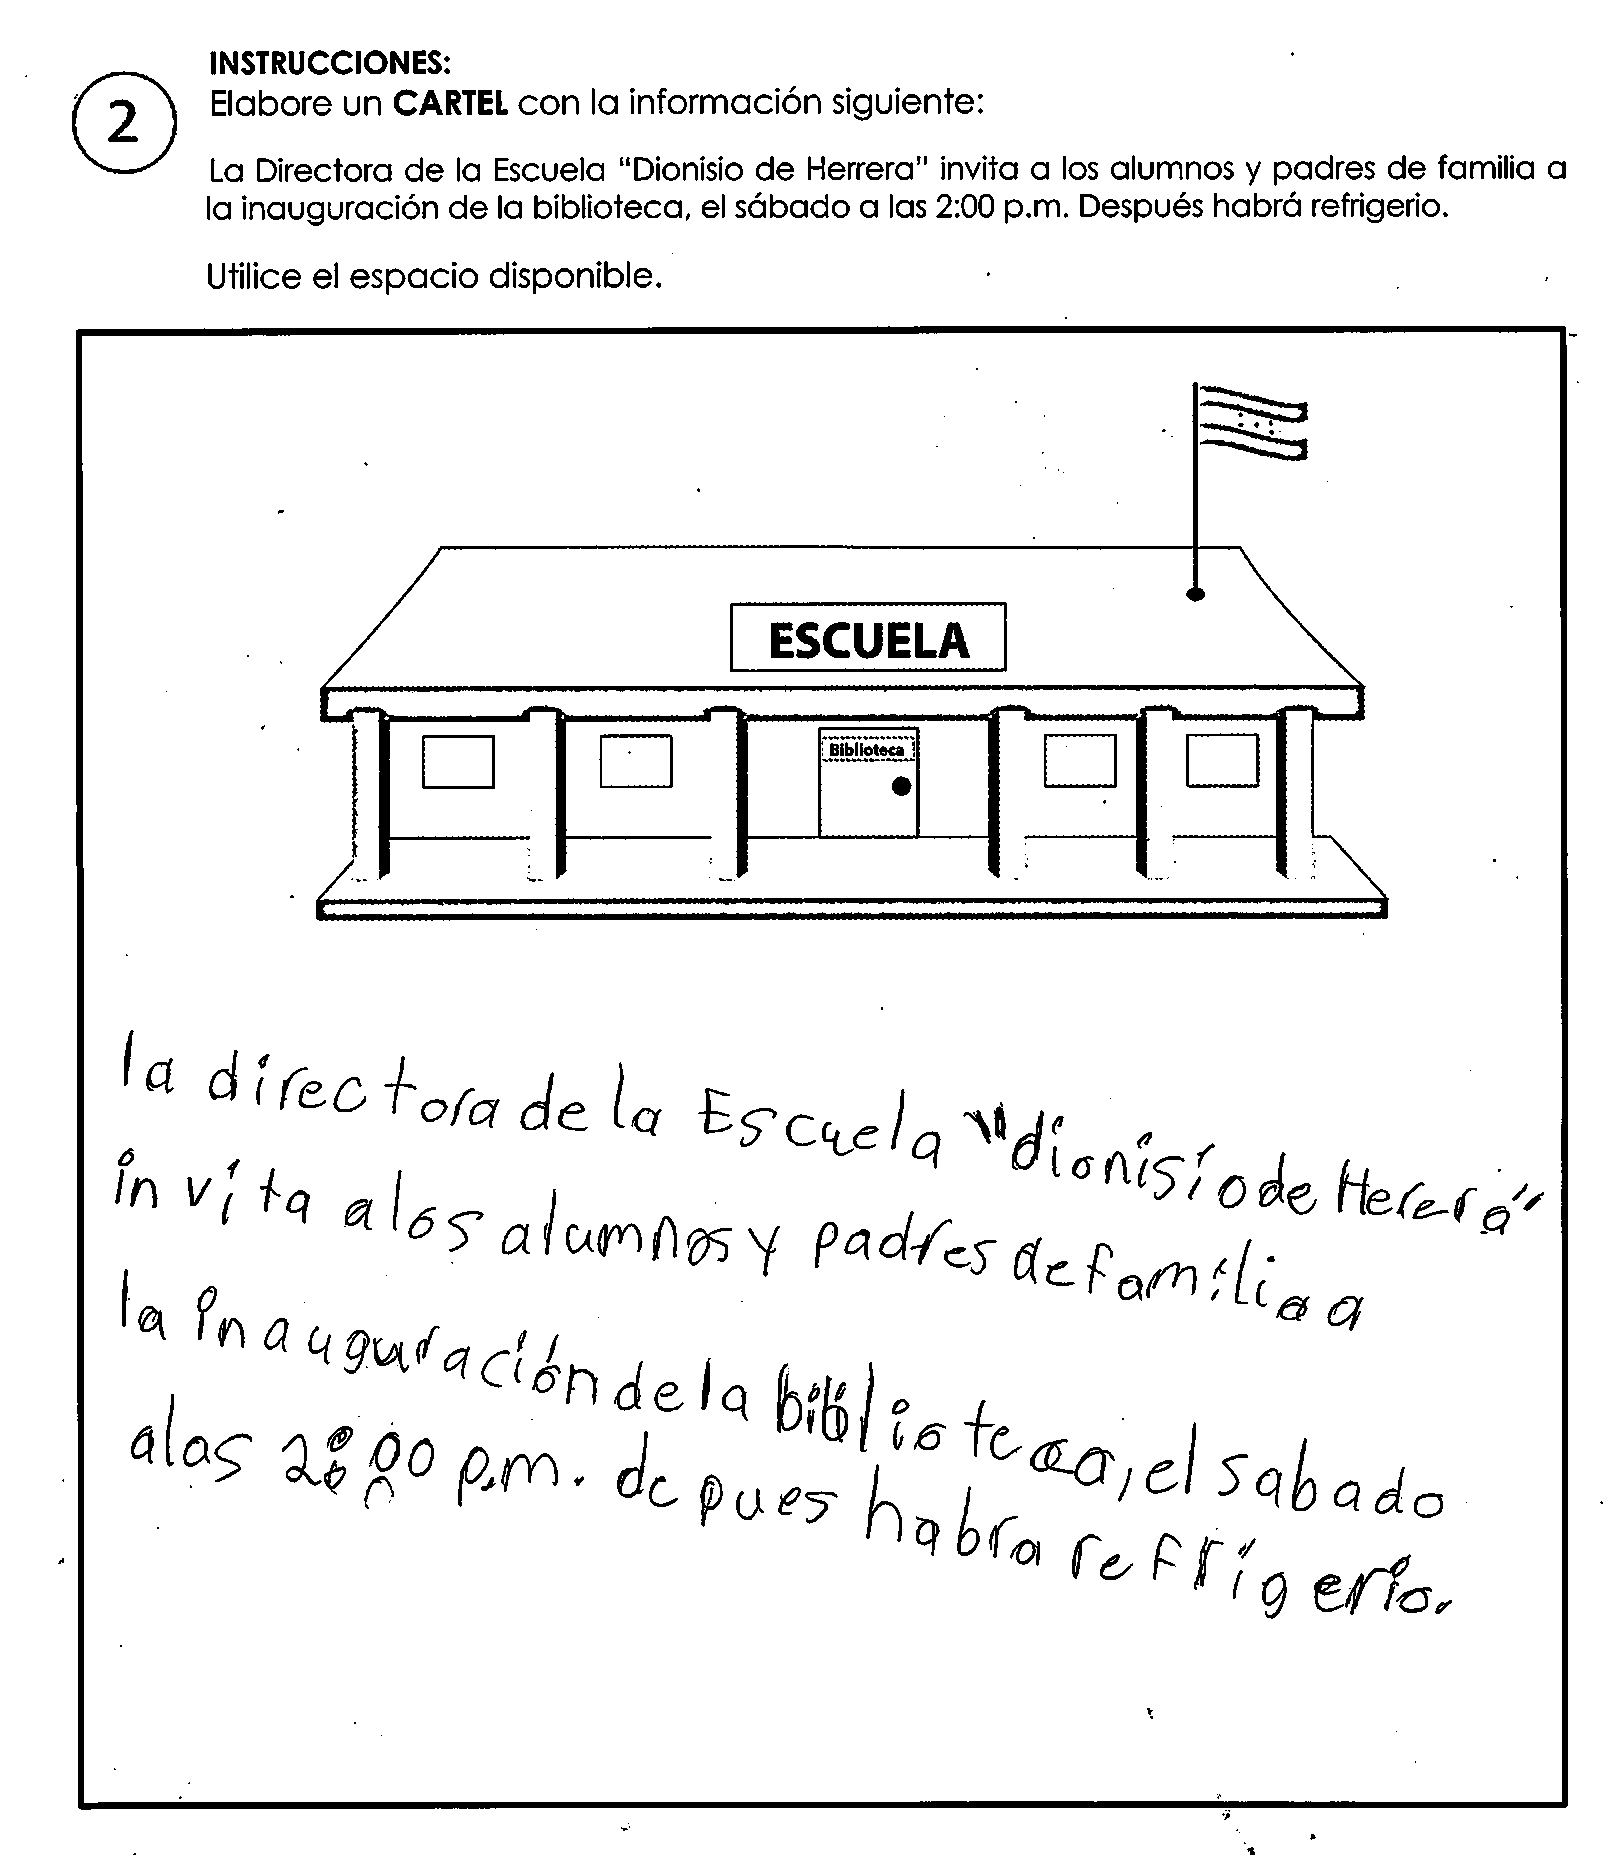 INSTRUCCIONES:
2
Elabore un CARTEL con la información siguiente:
La Directora de la Escuela "Dionisio de Herrera" invita a los alumnos y padres de familia a
la inauguración de la biblioteca, el sábado a las 2:00 p.m. Después habrá refrigerio.
Utilice el espacio disponible.
ESCUELA
Biblioteca
la directora de la Escuela "dionisio de Herera"
invita a los alumnos y padres de familia a
la inauguración de la biblioteca, el sabado
a las 2:00 p.m. depues habra refrigerio.